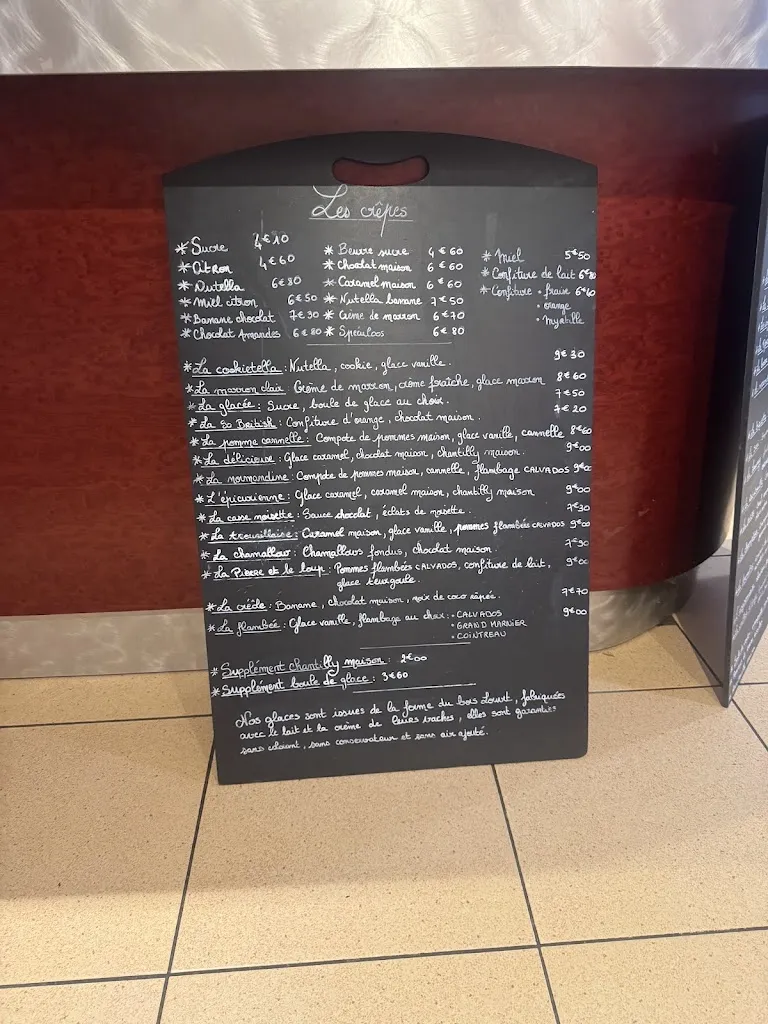 Les crêpes
* Sucre 4€10
* Citron 4€60
* Nutella 6€80
* Miel citron 6€50
* Banane chocolat 7€30
* Chocolat Amandes 6€80
* Beurre sucre 4€60
* Chocolat maison 6€60
* Caramel maison 6€60
* Nutella banane 7€50
* Crème de marron 6€70
* Spéculoos 6€80
* Miel 5€50
* Confiture de lait
* Confiture • fraise 6€40
• orange
• myrtille
* La cookietella : Nutella, cookie, glace vanille. 9€30
* La marron clair : Crème de marron, crème fraîche, glace marron 8€60
* La glacée : Sucre, boule de glace au choix. 7€50
* La So British : Confiture d'orange, chocolat maison. 7€20
* La pomme cannelle : Compote de pommes maison, glace vanille, cannelle 8€60
* La délicieuse : Glace caramel, chocolat maison, chantilly maison. 9€00
* La normandine : Compote de pommes maison, cannelle, flambage CALVADOS 9€00
* L'épicurienne : Glace caramel, caramel maison, chantilly maison 9€00
* La casse noisette : Sauce chocolat, éclats de noisette. 7€30
* La trouvillaise : Caramel maison, glace vanille, pommes flambées CALVADOS 9€00
* La chamallow : Chamallows fondus, chocolat maison. 7€30
* La Pierre et le loup : Pommes flambées CALVADOS, confiture de lait, 9€00
glace teurgoule.
* La créole : Banane, chocolat maison, noix de coco rapée. 7€70
* La flambée : Glace vanille, flambage au choix : • CALVADOS 9€00
• GRAND MARNIER
• COINTREAU
* Supplément chantilly maison : 2€00
* Supplément boule de glace : 3€60
Nos glaces sont issues de la ferme du bois Louvet, fabriquées
avec le lait et la crème de leurs vaches, elles sont garanties
sans colorant, sans conservateur et sans air ajouté.